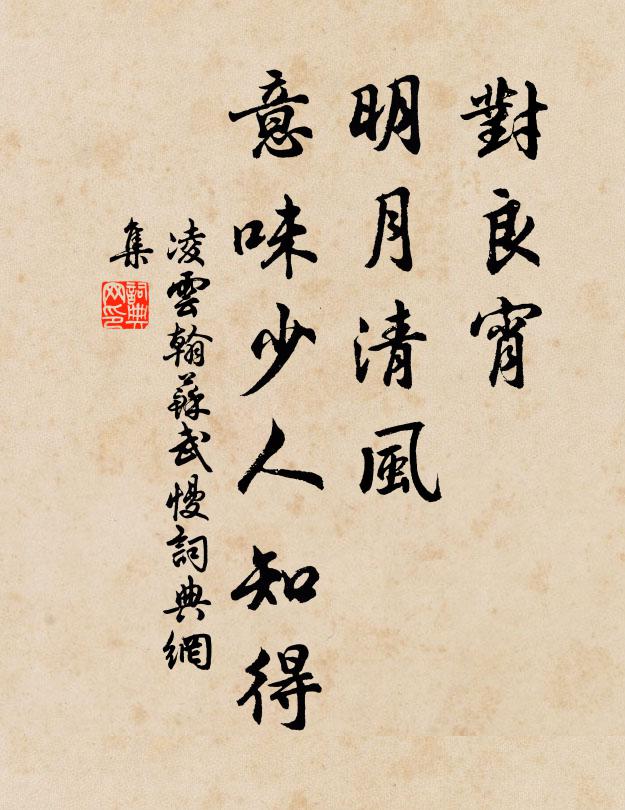 對良宵
明月清風
意味少人知得
凌雲翰蘇武慢詞典網
集
詞典网印